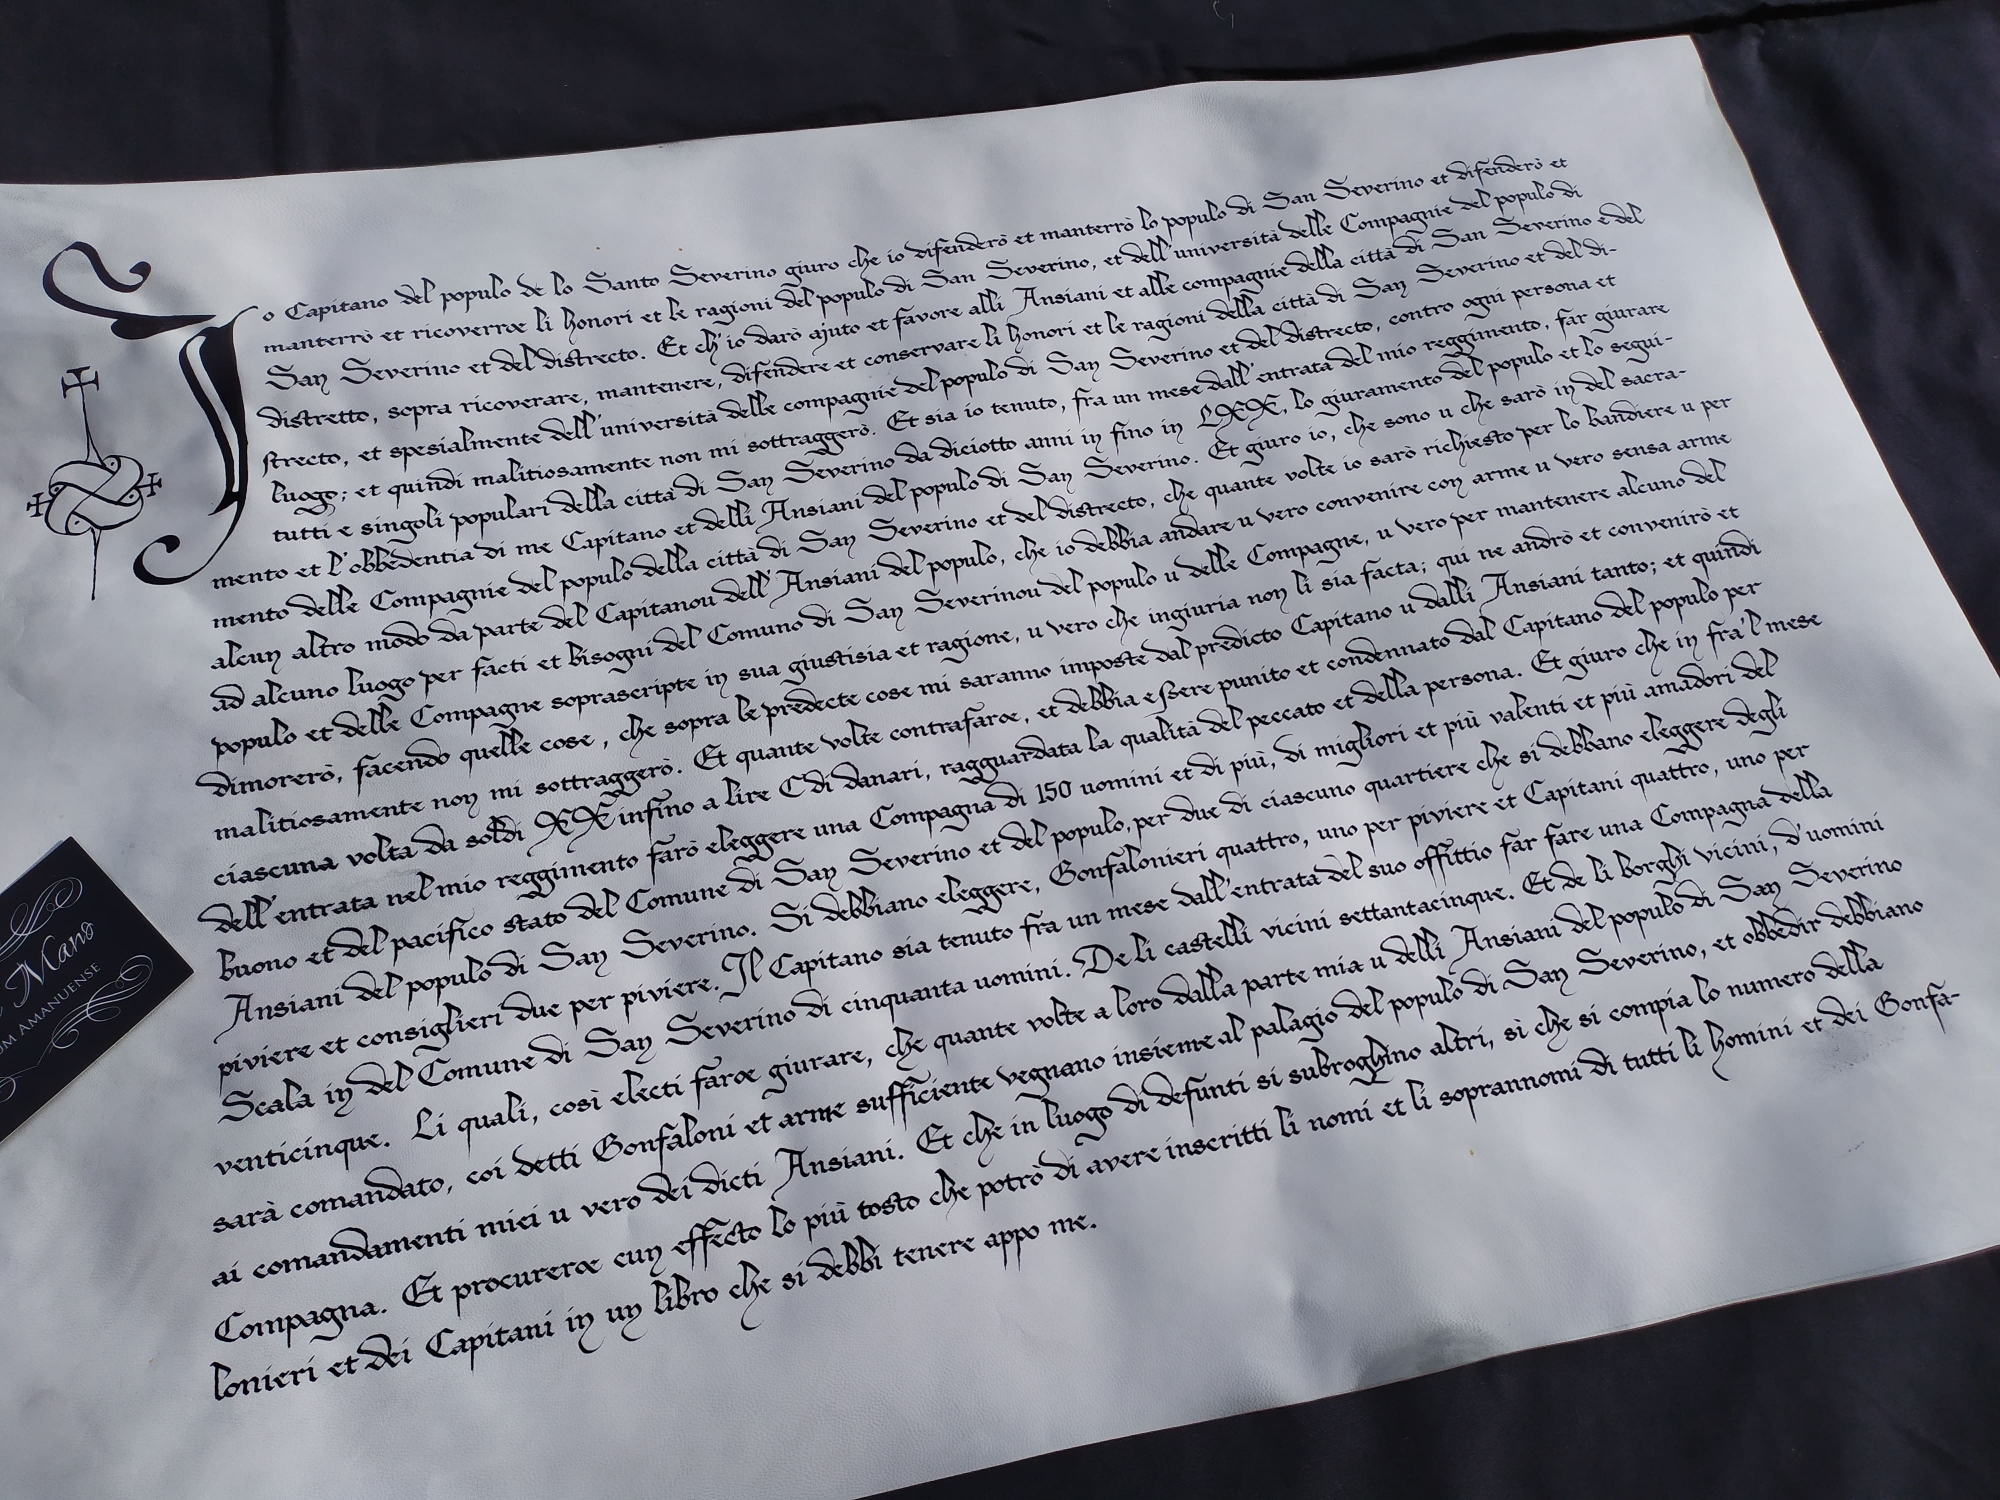 Io Capitano del populo de lo Santo Severino giuro che io difenderò et manterrò lo populo di San Severino et difenderò et
manterrò et ricoverroe li honori et le ragioni del populo di San Severino, et dell'università delle Compagnie del populo di
San Severino et del distrecto. Et ch'io darò ajuto et favore alli Ansiani et alle compagnie della città di San Severino e del
distretto, sopra ricoverare, mantenere, difendere et conservare li honori et le ragioni della città di San Severino et del di-
strecto, et spesialmente dell'università delle compagnie del populo di San Severino et del distrecto, contro ogni persona et
luogo; et quindi malitiosamente non mi sottraggerò. Et sia io tenuto, fra un mese dall'entrata del mio reggimento, far giurare
tutti e singoli populari della città di San Severino da diciotto anni in fino in LXX, lo giuramento del populo et lo segui-
mento et l'obbedentia di me Capitano et delli Ansiani del populo di San Severino. Et giuro io, che sono u che sarò in del sacra-
mento delle Compagnie del populo della città di San Severino et del distrecto, che quante volte io sarò richiesto per lo bandiere u per
alcun altro modo da parte del Capitanou dell'Ansiani del populo, che io debbia andare u vero convenire con arme u vero sensa arme
ad alcuno luogo per facti et bisogni del Comuno di San Severinou del populo u delle Compagne, u vero per mantenere alcuno del
populo et delle Compagne soprascripte in sua giustisia et ragione, u vero che ingiuria non li sia facta; qui ne andrò et convenirò et
dimorerò, facendo quelle cose, che sopra le predecte cose mi saranno imposte dal predicto Capitano u dalli Ansiani tanto; et quindi
malitiosamente non mi sottraggerò. Et quante volte contrafaroe, et debbia essere punito et condennato dal Capitano del populo per
ciascuna volta da soldi XX infino a lire C di danari, ragguardata la qualità del peccato et della persona. Et giuro che in fra'l mese
dell'entrata nel mio reggimento farò eleggere una Compagna di 150 uomini et di più, di migliori et più valenti et più amadori del
buono et del pacifico stato del Comune di San Severino et del populo, per due di ciascuno quartiere che si debbano eleggere degli
Ansiani del populo di San Severino. Si debbiano eleggere, Gonfalonieri quattro, uno per piviere et Capitani quattro, uno per
piviere et consiglieri due per piviere. Il Capitano sia tenuto fra un mese dall'entrata del suo offittio far fare una Compagna della
Scala in del Comune di San Severino di cinquanta uomini. De li castelli vicini settantacinque. Et de li borghi vicini, d'uomini
venticinque. Li quali, così electi faroe giurare, che quante volte a loro dalla parte mia u delli Ansiani del populo di San Severino
sarà comandato, coi detti Gonfaloni et arme sufficiente vegnano insieme al palagio del populo di San Severino, et obbedir debbiano
ai comandamenti miei u vero dei dicti Ansiani. Et che in luogo di defunti si subroghino altri, sì che si compia lo numero della
Compagna. Et procureroe cun effecto lo più tosto che potrò di avere inscritti li nomi et li soprannomi di tutti li homini et dei Gonfa-
lonieri et dei Capitani in un libro che si debbi tenere appo me.
Mano
AMANUENSE